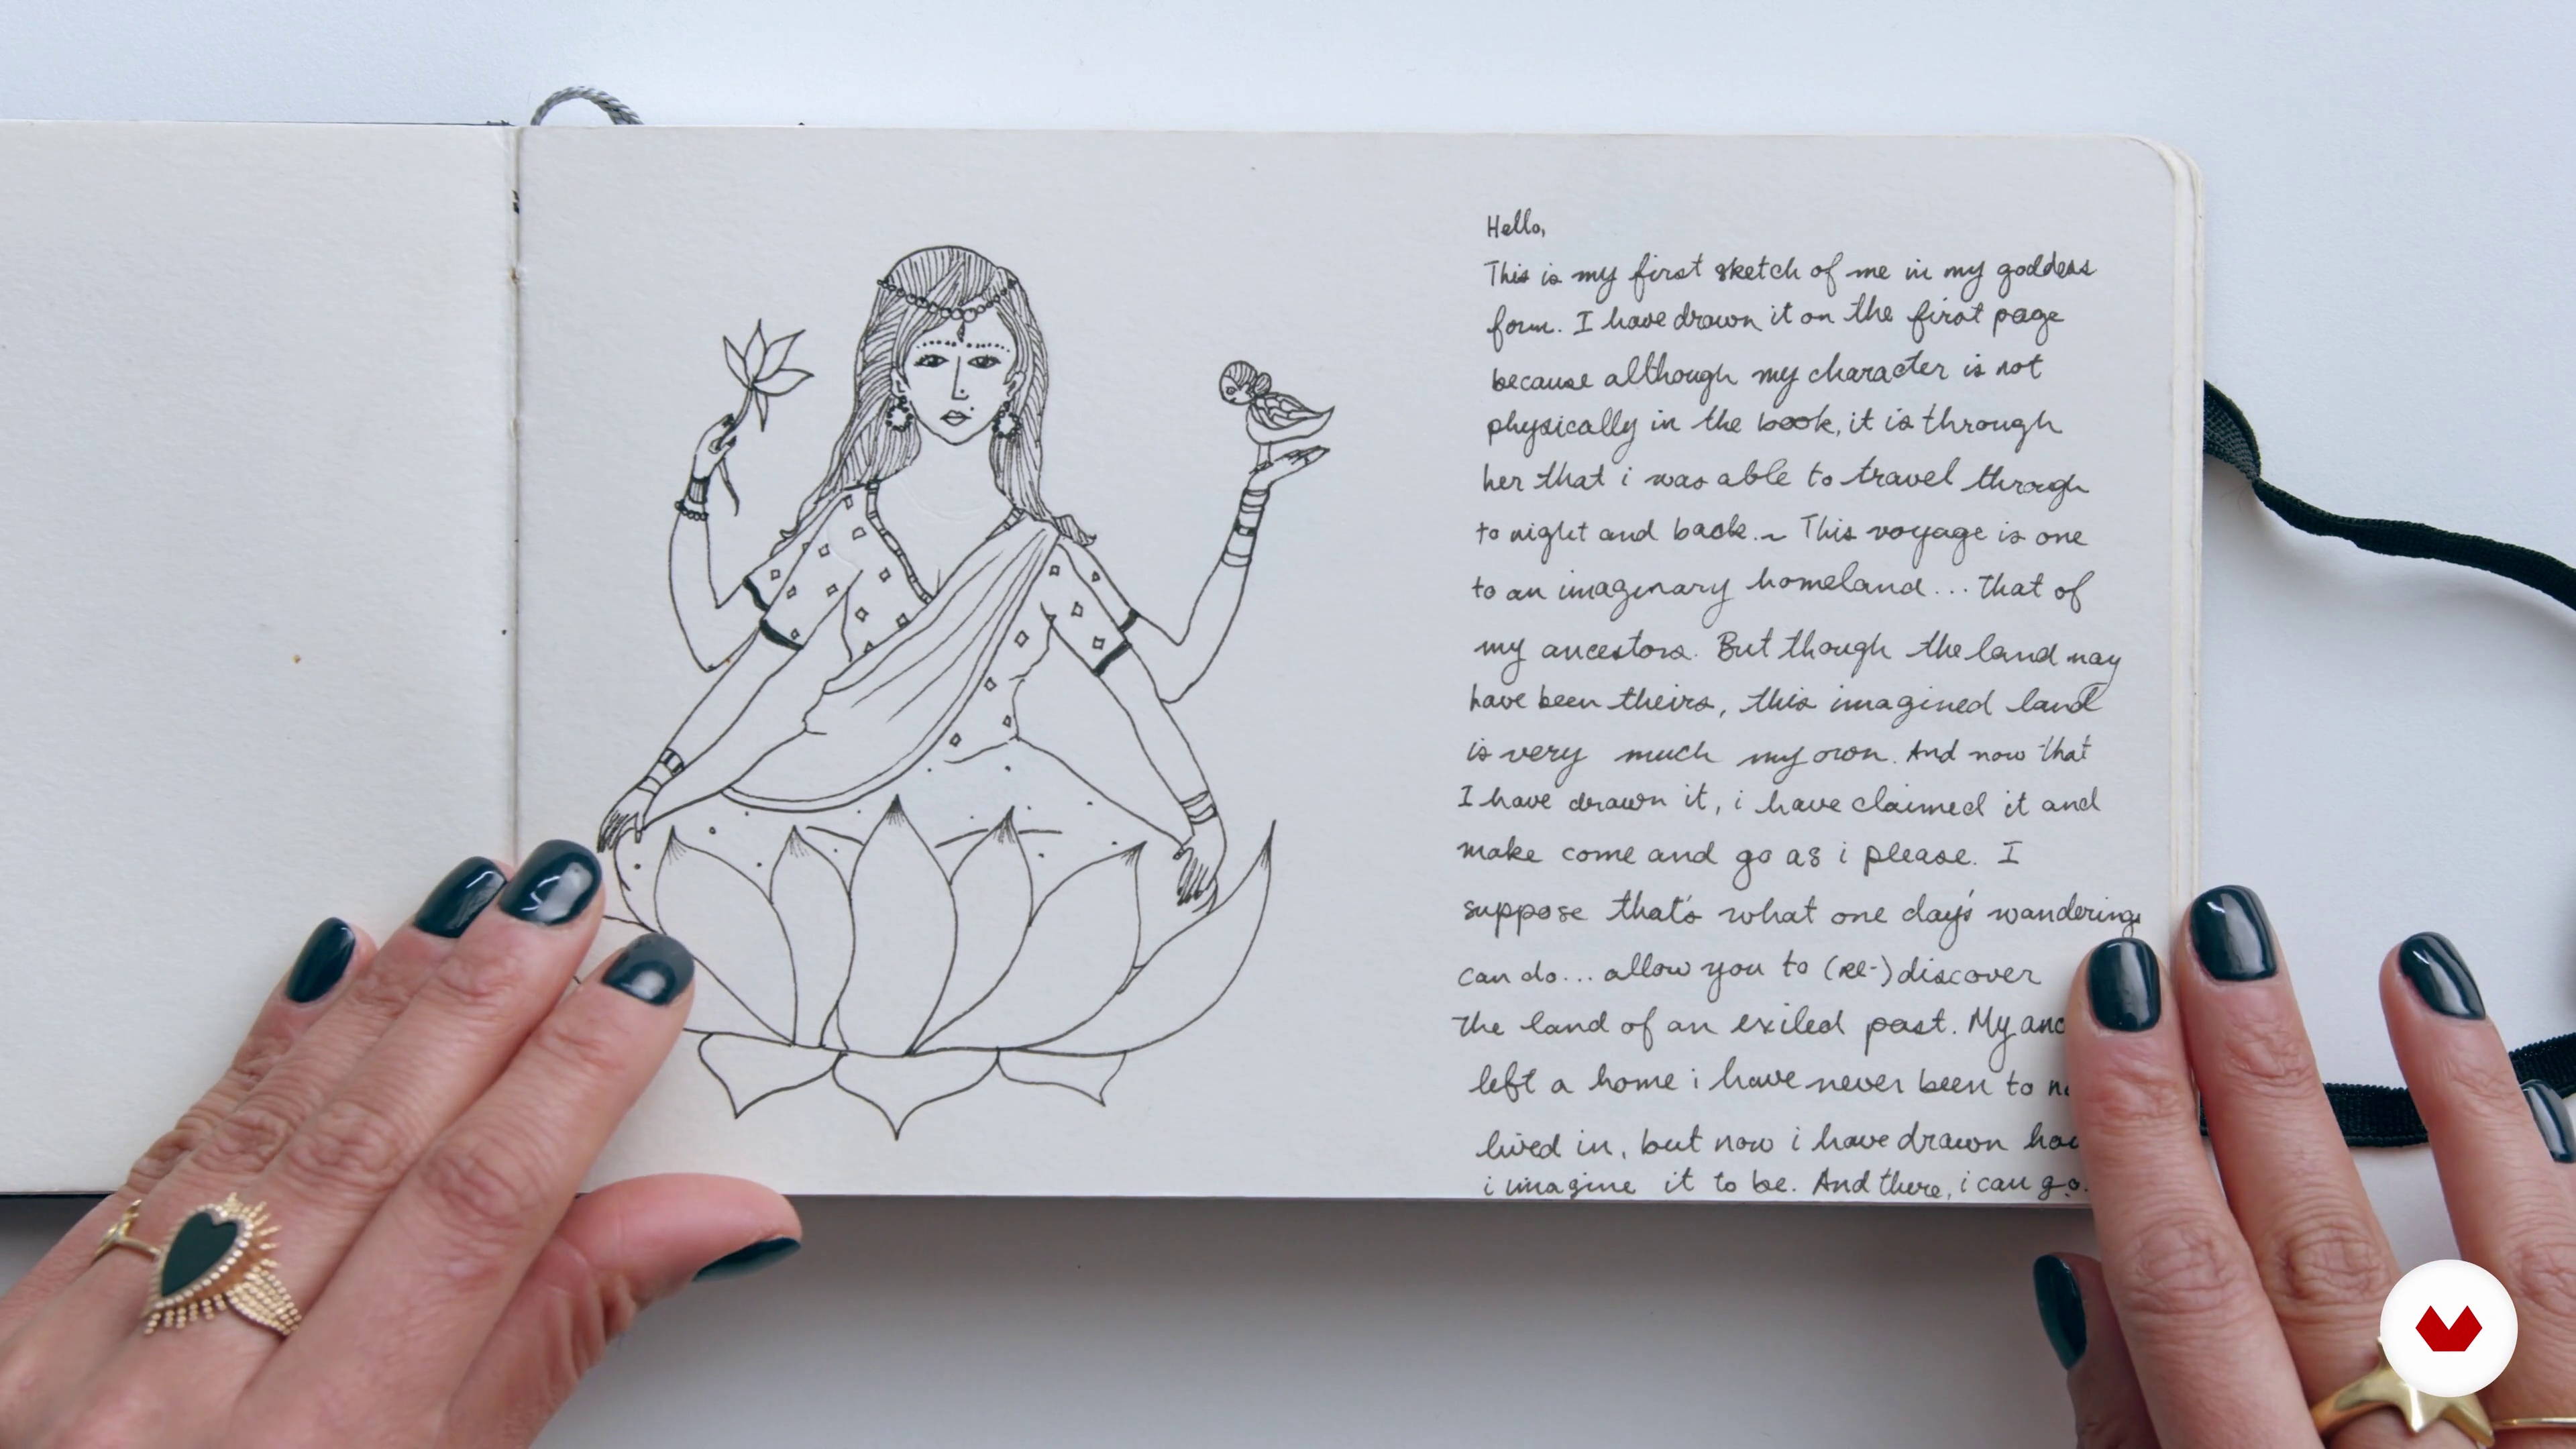 Hello,
This is my first sketch of me in my goddess
form. I have drawn it on the first page
because although my character is not
physically in the book, it is through
her that i was able to travel through
to night and back. ~ This voyage is one
to an imaginary homeland... that of
my ancestors. But though the land may
have been theirs, this imagined land
is very much my own. And now that
I have drawn it, i have claimed it and
make come and go as i please. I
suppose that's what one day's wanderings
can do... allow you to (re-)discover
the land of an exiled past. My anc
left a home i have never been to n
lived in, but now i have drawn how
i imagine it to be. And there, i can go.